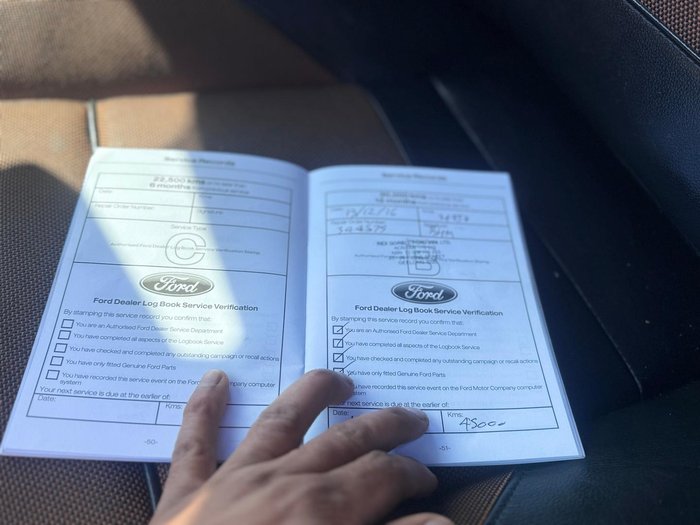 Service Records
22,500 kms or no later than
6 months
Date:
Kms:
Repair Order Number:
Signature:
Service Type
C
Authorised Ford Dealer Log Book Service Verification Stamp
Ford
Ford Dealer Log Book Service Verification
By stamping this service record you confirm that:
You are an Authorised Ford Dealer Service Department
You have completed all aspects of the Logbook Service
You have checked and completed any outstanding campaign or recall actions
You have only fitted Genuine Ford Parts
You have recorded this service event on the Ford Company computer
system
Your next service is due at the earlier of:
Date:
Kms:
-50-
Service Records
Repair Order Number:
B
Ford
Ford Dealer Log Book Service Verification
By stamping this service record you confirm that:
You are an Authorised Ford Dealer Service Department
You have completed all aspects of the Logbook Service
You have checked and completed any outstanding campaign or recall actions
You have only fitted Genuine Ford Parts
have recorded this service event on the Ford Motor Company computer
next service is due at the earlier of:
Date:
Kms:
-51-